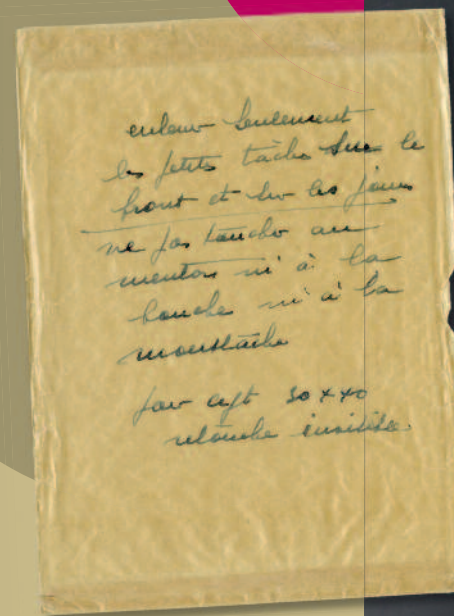 enlever seulement
les petites tâches sur le
front et sur les joues
ne pas toucher au
menton ni à la
bouche ni à la
moustache
pour agt 30 x 40
retouche invisible